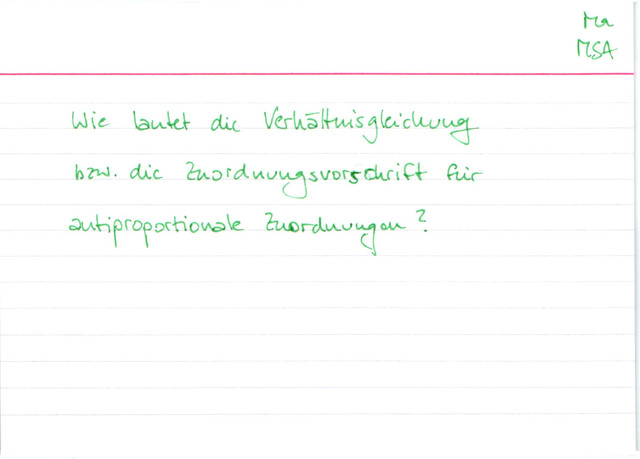 Ma
MSA
Wie lautet die Verhältnisgleichung
bzw. die Zuordnungsvorschrift für
antiproportionale Zuordnungen?